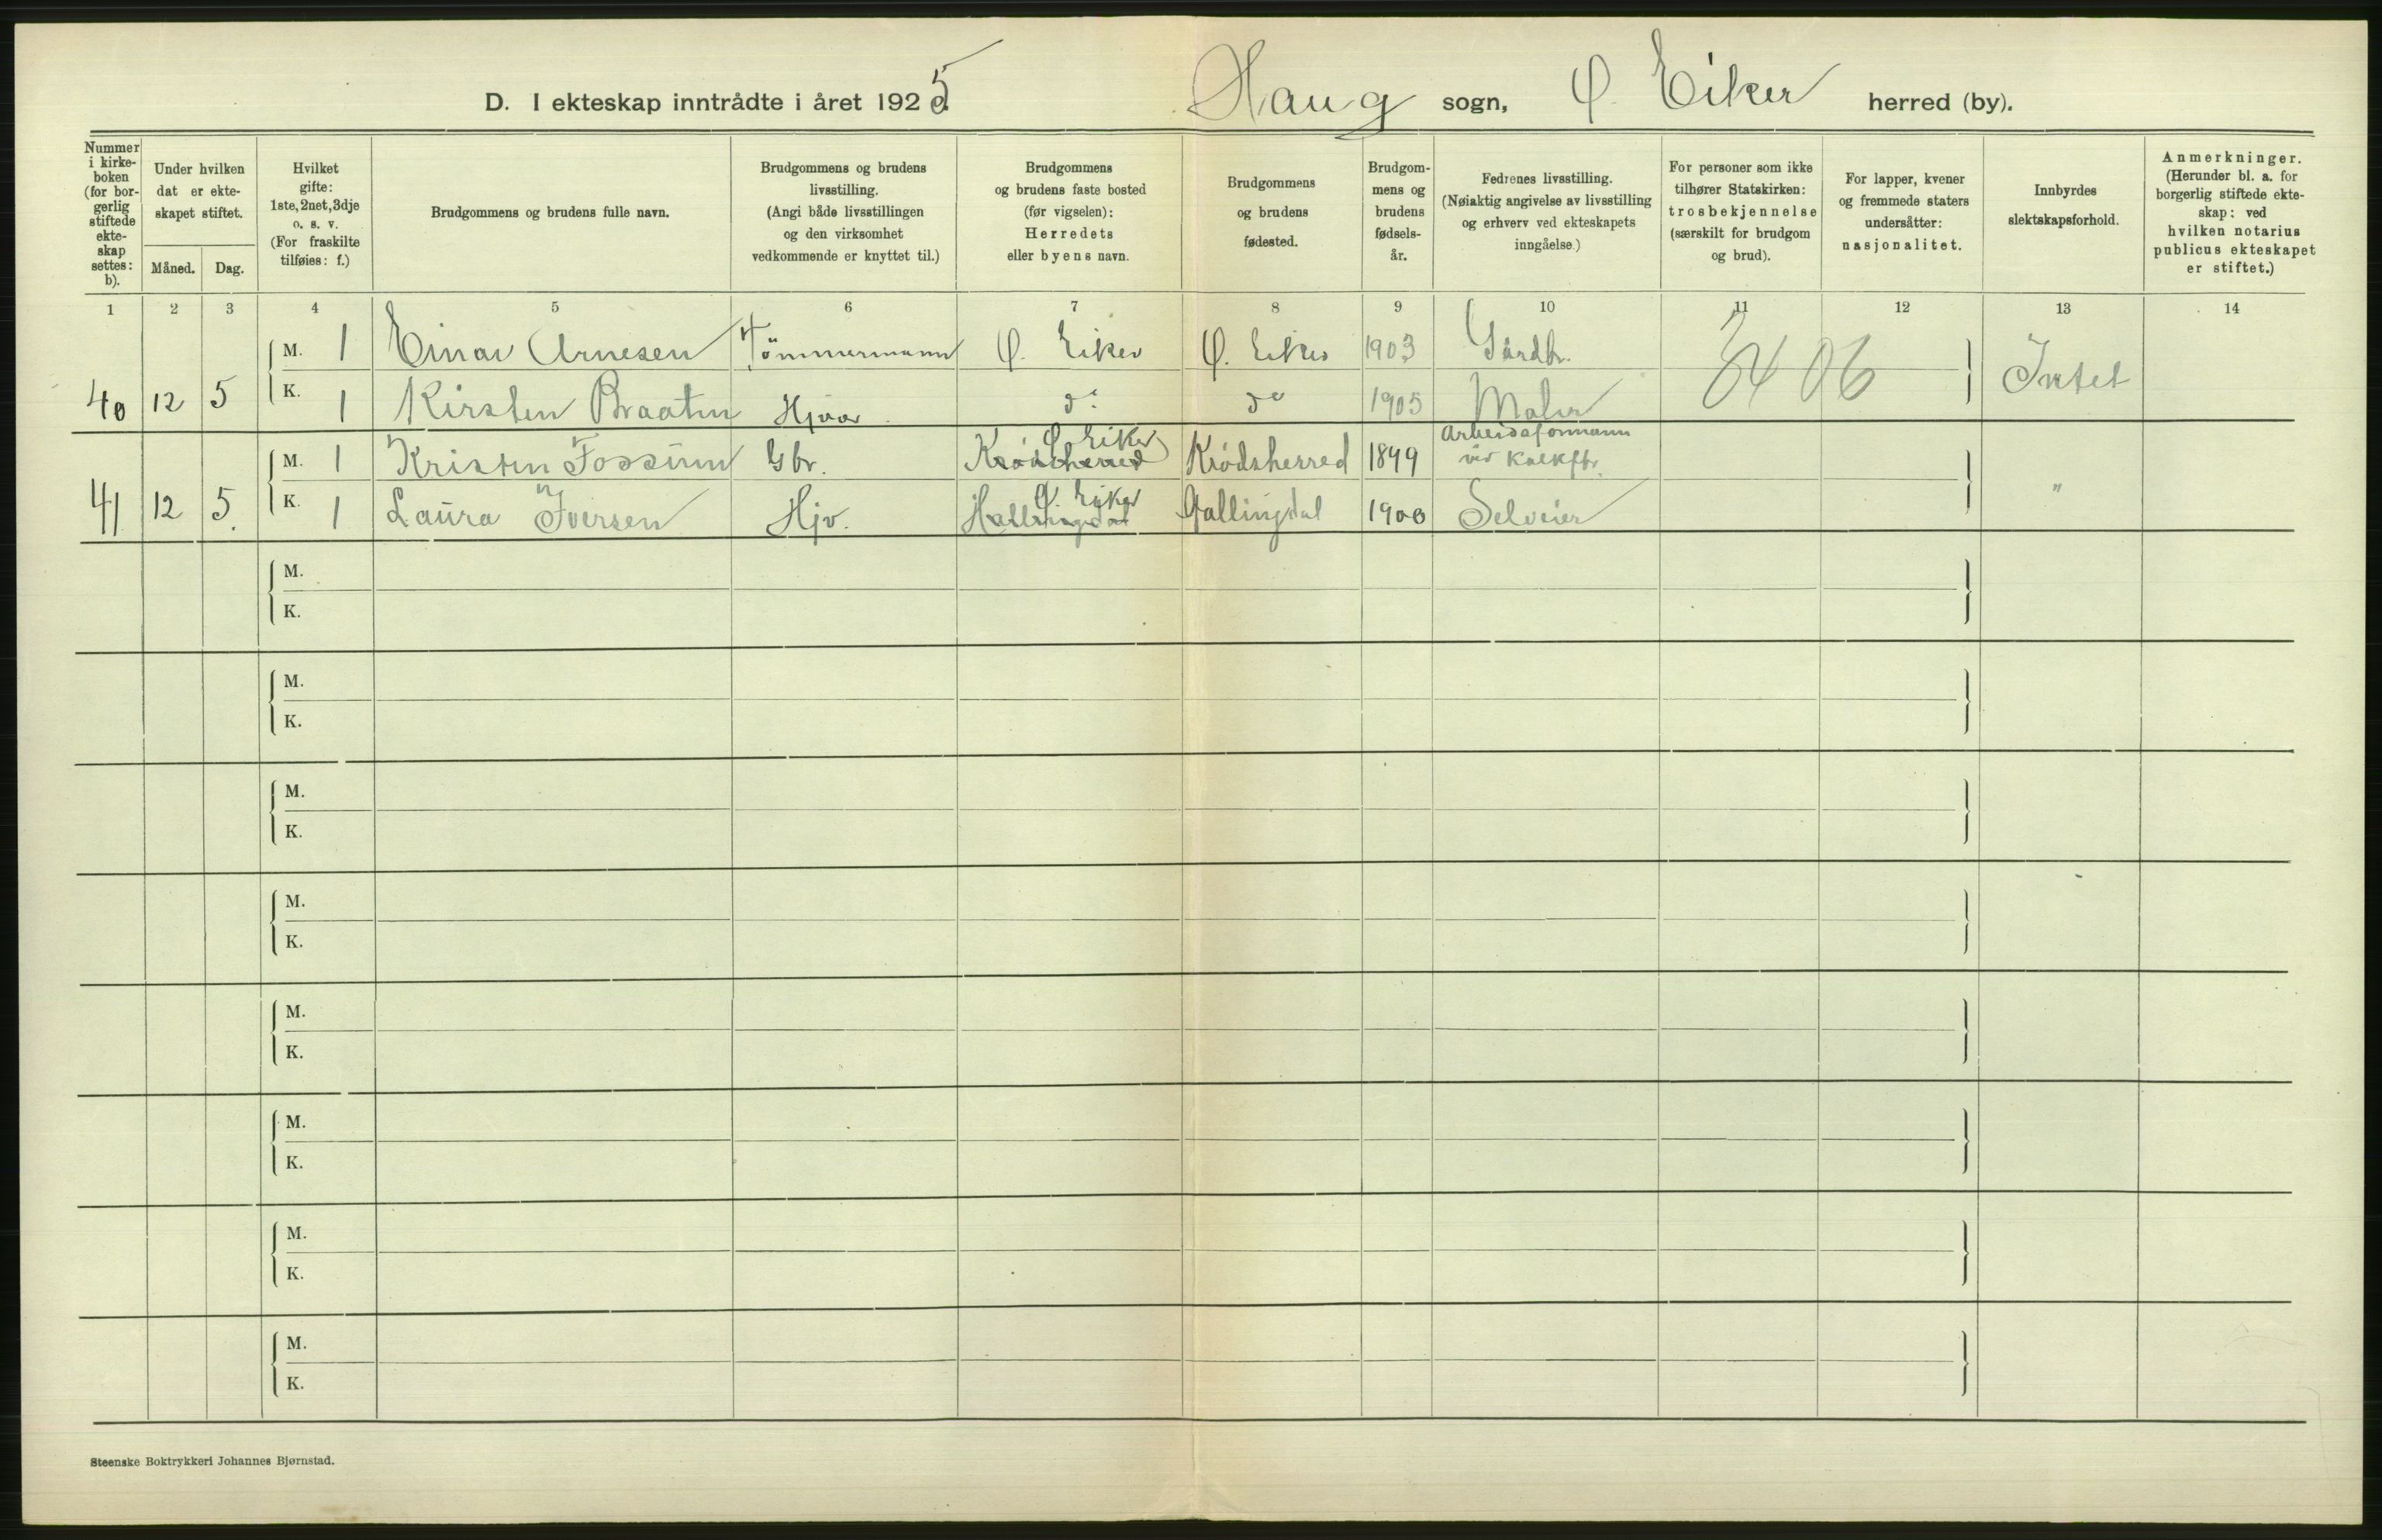 D. I ekteskap inntrådte i året 1925. Haug sogn, Ø. Eiker herred (by).
Nummer i kirkeboken (for borgerlig stiftede ekteskap settes: b).
Under hvilken dat er ekteskapet stiftet.
Måned. Dag.
Hvilket gifte: 1ste, 2net, 3dje o. s. v. (For fraskilte tilføies: f.)
Brudgommens og brudens fulle navn.
Brudgommens og brudens livsstilling. (Angi både livsstillingen og den virksomhet vedkommende er knyttet til.)
Brudgommens og brudens faste bosted (før vigselen): Herredets eller byens navn.
Brudgommens og brudens fødested.
Brudgommens og brudens fødselsår.
Fedrenes livsstilling. (Nøiaktig angivelse av livsstilling og erhverv ved ekteskapets inngåelse.)
For personer som ikke tilhører Statskirken: trosbekjennelse (særskilt for brudgom og brud).
For lapper, kvener og fremmede staters undersåtter: nasjonalitet.
Innbyrdes slektskapsforhold.
Anmerkninger. (Herunder bl. a. for borgerlig stiftede ekteskap: ved hvilken notarius publicus ekteskapet er stiftet.)
1 2 3 4 5 6 7 8 9 10 11 12 13 14
M. 1 Einar Arnesen Tömmermann Ø. Eiker Ø. Eiker 1903 Gårdbr. 3406 Intet
40 12 5 K. 1 Kirsten Braaten Hjvær do do 1905 Maler
M. 1 Kristen Fossum Gbr. Krödsherred Ø. Eiker Krödsherred 1899 Arbeidsformann ved Kalkfbr.
41 12 5. K. 1 Laura Iversen Hjv. Hallingdal Ø. Eiker Hallingdal 1900 Selveier "
M.
K.
M.
K.
M.
K.
M.
K.
M.
K.
M.
K.
M.
K.
M.
K.
Steenske Boktrykkeri Johannes Bjørnstad.